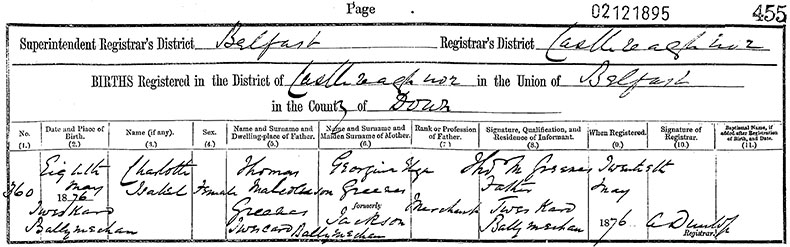 Page 02121895 455
Superintendent Registrar's District Belfast Registrar's District Castlereagh No 2
BIRTHS Registered in the District of Castlereagh No 2 in the Union of Belfast
in the County of Down
No. (1.) Date and Place of Birth. (2.) Name (if any). (3.) Sex. (4.) Name and Surname and Dwelling-place of Father. (5.) Name and Surname and Maiden Surname of Mother. (6.) Rank or Profession of Father. (7.) Signature, Qualification, and Residence of Informant. (8.) When Registered. (9.) Signature of Registrar. (10.) Baptismal Name, if added after Registration of Birth, and Date. (11.)
Eighth Charlotte Thomas Thos M Greeves Twentieth
May Isabel Female Malcolmson Greeves Father May
360 1876 Greeves formerly Merchant 1876
Jackson Registrar.
Ballymechan Ballymechan Ballymechan